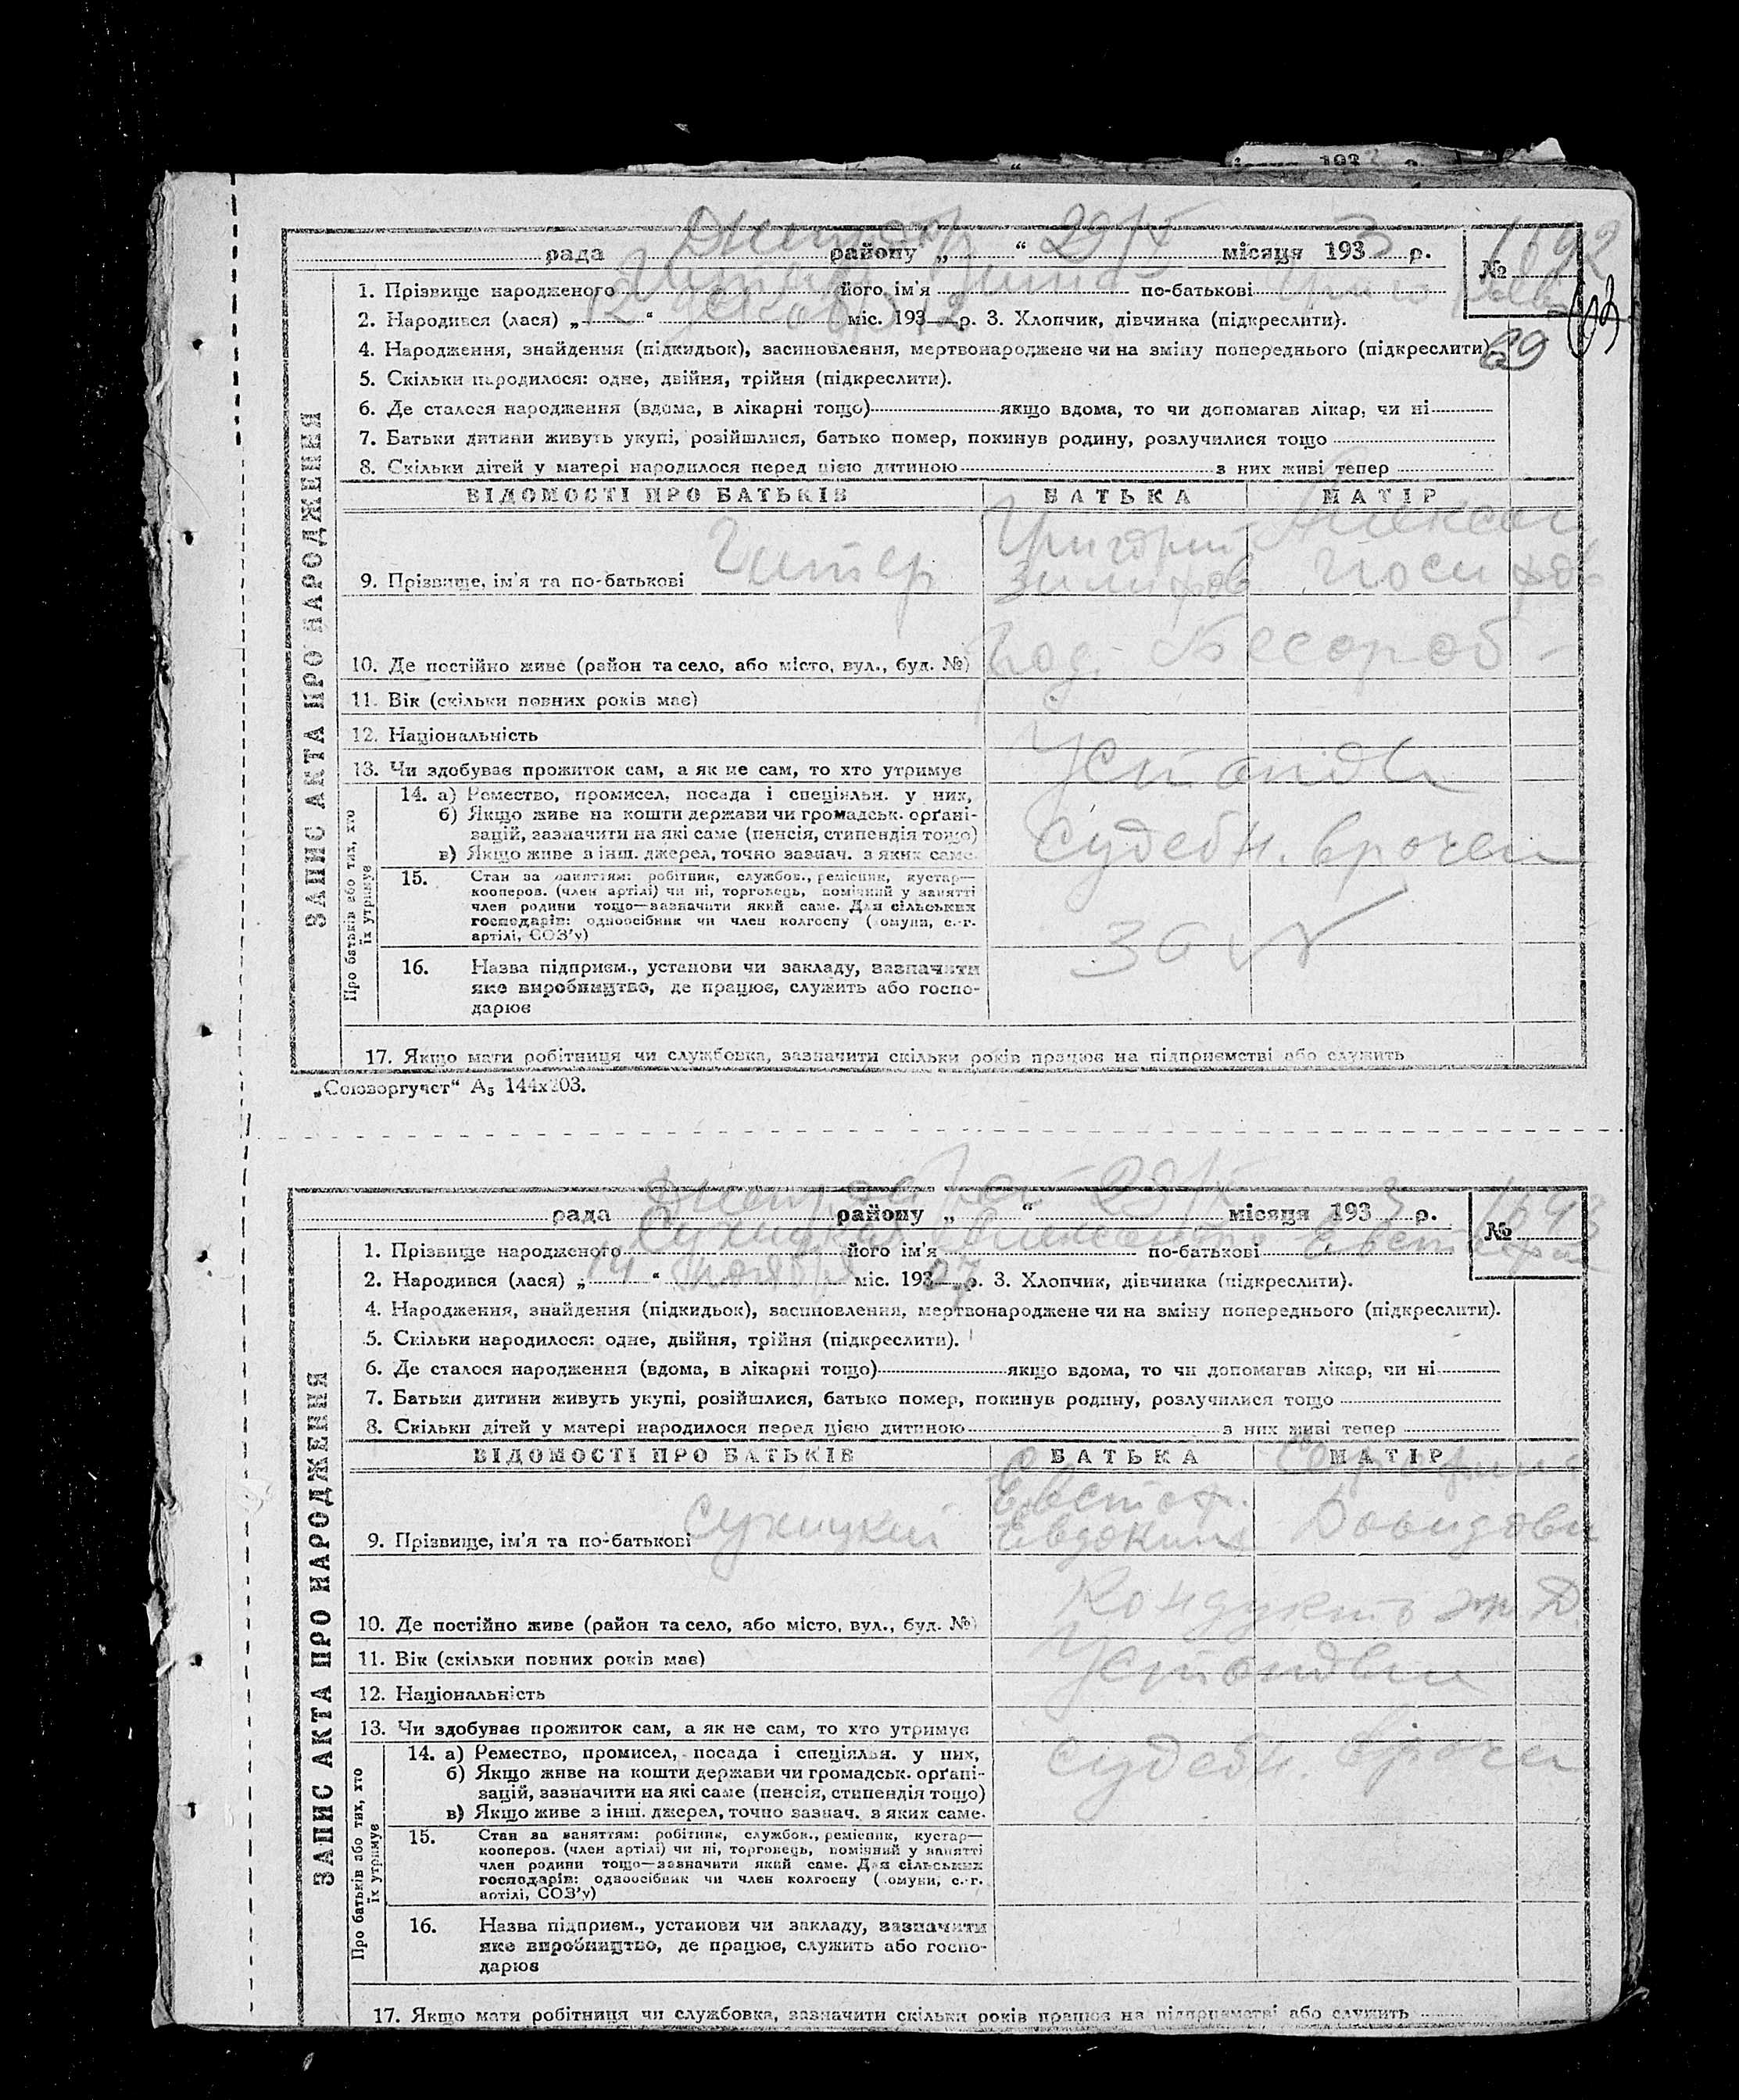 рада Днепроп района „ “ 29/X місяця 1933 р. № 1692
1. Прізвище народженого його ім'я по-батькові
2. Народився (лася) „12“ декаб міс. 1932 р. 3. Хлопчик, дівчинка (підкреслити).
69
4. Народження, знайдення (підкидьок), засиновлення, мертвонароджене чи на зміну попереднього (підкреслити).
5. Скільки народилося: одне, двійня, трійня (підкреслити).
6. Де сталося народження (вдома, в лікарні тощо) якщо вдома, то чи допомагав лікар, чи ні
7. Батьки дитини живуть укупі, розійшлися, батько помер, покинув родину, розлучилися тощо
8. Скільки дітей у матері народилося перед цією дитиною з них живі тепер
ВІДОМОСТІ ПРО БАТЬКІВ БАТЬКА МАТІР
9. Прізвище, ім'я та по-батькові Григорий Иосифов
10. Де постійно живе (район та село, або місто, вул., буд. №)
11. Вік (скільки повних років має)
12. Національність
13. Чи здобуває прожиток сам, а як не сам, то хто утримує Установл
14. а) Ремество, промисел, посада і спеціяльн. у них,
б) Якщо живе на кошти держави чи громадськ. орґані-
зацій, зазначити на які саме (пенсія, стипендія тощо) судебн. врачем
в) Якщо живе з інш. джерел, точно зазнач. з яких саме.
15. Стан за заняттям: робітник, службов., ремісник, кустар—
кооперов. (член артілі) чи ні, торговець, помічний у занятті
член родини тощо—зазначити який саме. Для сільських
господарів: одноосібник чи член колгоспу (комуни, с.-г.
артілі, СОЗ'у)
16. Назва підприєм., установи чи закладу, зазначити
яке виробництво, де працює, служить або госпо-
дарює
17. Якщо мати робітниця чи службовка, зазначити скільки років працює на підприємстві або служить
ЗАПИС АКТА ПРО НАРОДЖЕННЯ
Про батьків або тих, хто
їх утримує
„Союзоргучет“ А₅ 144х203.
рада района „ “ 29/X місяця 1933 р. № 1693
1. Прізвище народженого його ім'я Александр по-батькові
2. Народився (лася) „14“ ноября міс. 1927 р. 3. Хлопчик, дівчинка (підкреслити).
4. Народження, знайдення (підкидьок), засиновлення, мертвонароджене чи на зміну попереднього (підкреслити).
5. Скільки народилося: одне, двійня, трійня (підкреслити).
6. Де сталося народження (вдома, в лікарні тощо) якщо вдома, то чи допомагав лікар, чи ні
7. Батьки дитини живуть укупі, розійшлися, батько помер, покинув родину, розлучилися тощо
8. Скільки дітей у матері народилося перед цією дитиною з них живі тепер
ВІДОМОСТІ ПРО БАТЬКІВ БАТЬКА МАТІР
Евстаф. Серафима
9. Прізвище, ім'я та по-батькові Евдоким Давидовн
10. Де постійно живе (район та село, або місто, вул., буд. №) Кондукт
11. Вік (скільки повних років має) Установлен
12. Національність
13. Чи здобуває прожиток сам, а як не сам, то хто утримує
14. а) Ремество, промисел, посада і спеціяльн. у них, судебн. врачем
б) Якщо живе на кошти держави чи громадськ. орґані-
зацій, зазначити на які саме (пенсія, стипендія тощо)
в) Якщо живе з інш. джерел, точно зазнач. з яких саме.
15. Стан за заняттям: робітник, службов., ремісник, кустар—
кооперов. (член артілі) чи ні, торговець, помічний у занятті
член родини тощо—зазначити який саме. Для сільських
господарів: одноосібник чи член колгоспу (комуни, с.-г.
артілі, СОЗ'у)
16. Назва підприєм., установи чи закладу, зазначити
яке виробництво, де працює, служить або госпо-
дарює
17. Якщо мати робітниця чи службовка, зазначити скільки років працює на підприємстві або служить
ЗАПИС АКТА ПРО НАРОДЖЕННЯ
Про батьків або тих, хто
їх утримує